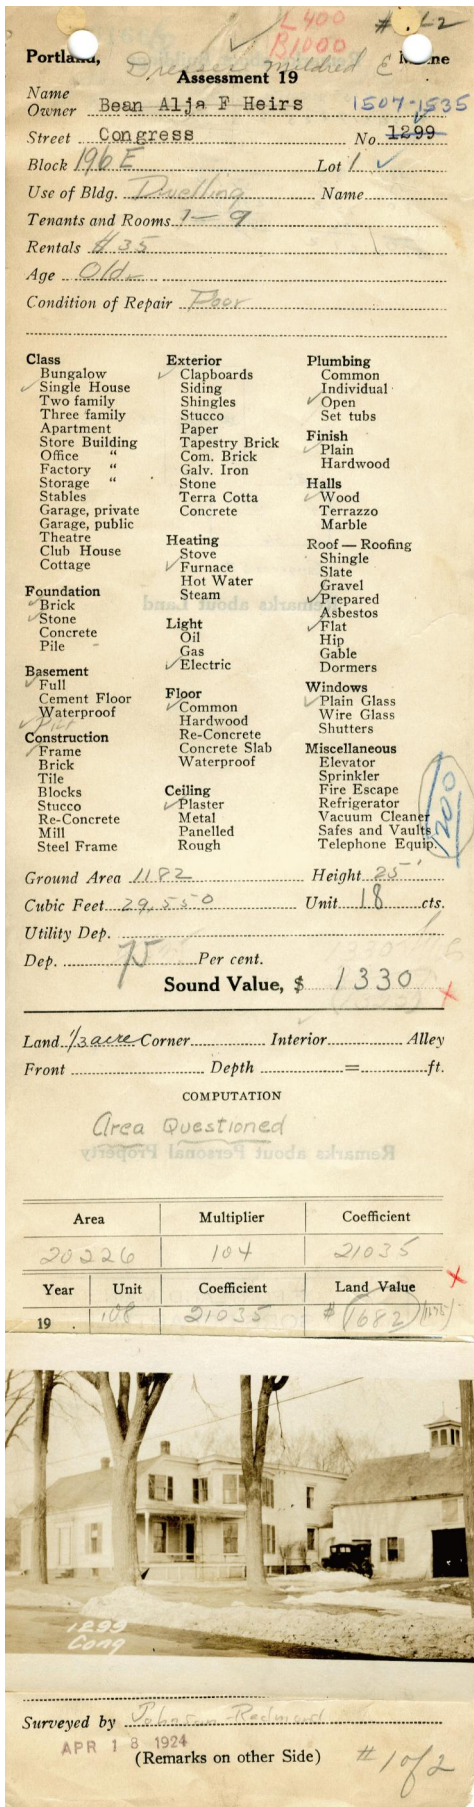 L 400
# 1-2
B 1000
Portland, Maine
Dresser Mildred E
Assessment 19
Name
Owner Bean Alja F Heirs 1507-1535
Street Congress No. 1299
Block 196 E Lot 1
Use of Bldg. Dwelling Name
Tenants and Rooms 1-9
Rentals #35
Age Old
Condition of Repair Poor
Class
Bungalow
Single House
Two family
Three family
Apartment
Store Building
Office "
Factory "
Storage "
Stables
Garage, private
Garage, public
Theatre
Club House
Cottage
Foundation
Brick
Stone
Concrete
Pile
Basement
Full
Cement Floor
Waterproof
Construction
Frame
Brick
Tile
Blocks
Stucco
Re-Concrete
Mill
Steel Frame
Exterior
Clapboards
Siding
Shingles
Stucco
Paper
Tapestry Brick
Com. Brick
Galv. Iron
Stone
Terra Cotta
Concrete
Heating
Stove
Furnace
Hot Water
Steam
Light
Oil
Gas
Electric
Floor
Common
Hardwood
Re-Concrete
Concrete Slab
Waterproof
Ceiling
Plaster
Metal
Panelled
Rough
Plumbing
Common
Individual
Open
Set tubs
Finish
Plain
Hardwood
Halls
Wood
Terrazzo
Marble
Roof — Roofing
Shingle
Slate
Gravel
Prepared
Asbestos
Flat
Hip
Gable
Dormers
Windows
Plain Glass
Wire Glass
Shutters
Miscellaneous
Elevator
Sprinkler
Fire Escape
Refrigerator
Vacuum Cleaner
Safes and Vaults
Telephone Equip.
1200
Ground Area 1182 Height 25'
Cubic Feet 29,550 Unit 18 cts.
Utility Dep.
Dep. 75 Per cent.
Sound Value, $ 1330
Land 1/3 acre Corner Interior Alley
Front Depth = ft.
COMPUTATION
Area Questioned
Area Multiplier Coefficient
20226 104 21035
Year Unit Coefficient Land Value
19 108 21035 $ 1682
1299
Cong
Surveyed by Johnson-Redmond
APR 18 1924
(Remarks on other Side)
# 1 of 2